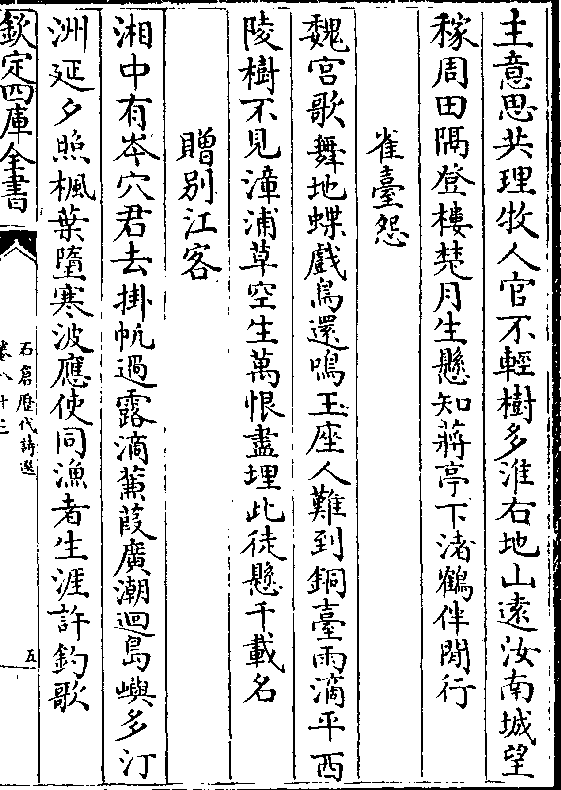 主意思共理牧人官不輕樹多淮右地山遠汝南城望
稼周田隅登樓楚月生懸知蔣亭下渚鶴伴閒行
雀臺怨
魏宮歌舞地蝶戲鳥還鳴玉座人難到銅臺雨滴平西
陵樹不見漳浦草空生萬恨盡埋此徒懸千載名
贈別江客
湘中有岑穴君去掛帆過露滴蒹葭廣潮迴島嶼多汀
洲延夕照楓葉墮寒波應使同漁者生涯許釣歌
欽定四庫全書
石倉歷代詩選
五